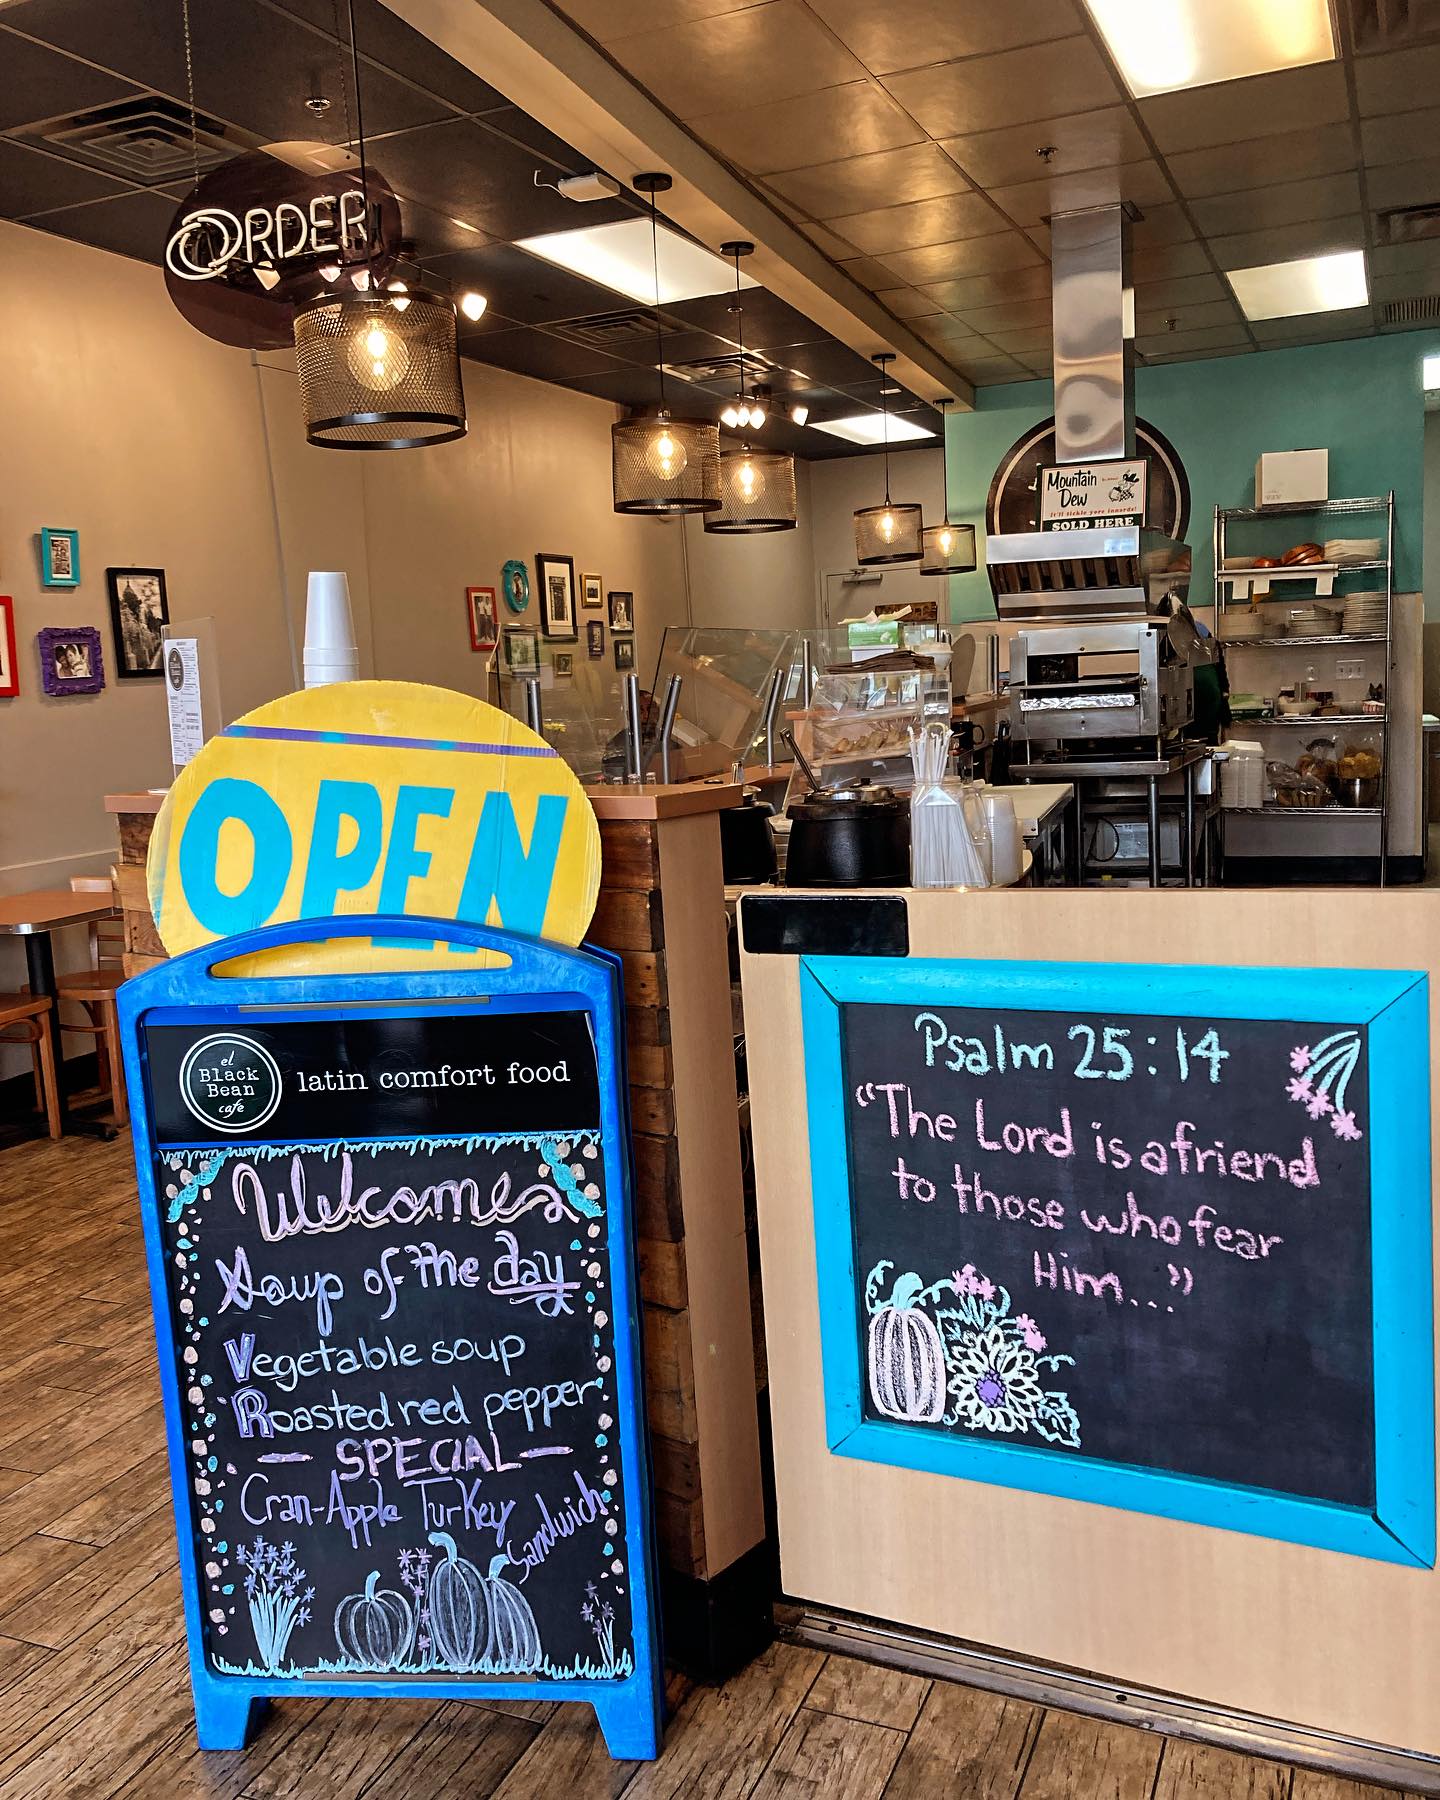 ORDER
Mountain
Dew
It'll tickle yore innards!
SOLD HERE
OPEN
el
Black
Bean
cafe
latin comfort food
Welcome
Soup of the day
Vegetable soup
Roasted red pepper
— SPECIAL —
Cran-Apple Turkey
Sandwich
Psalm 25:14
“The Lord is a friend
to those who fear
Him...”